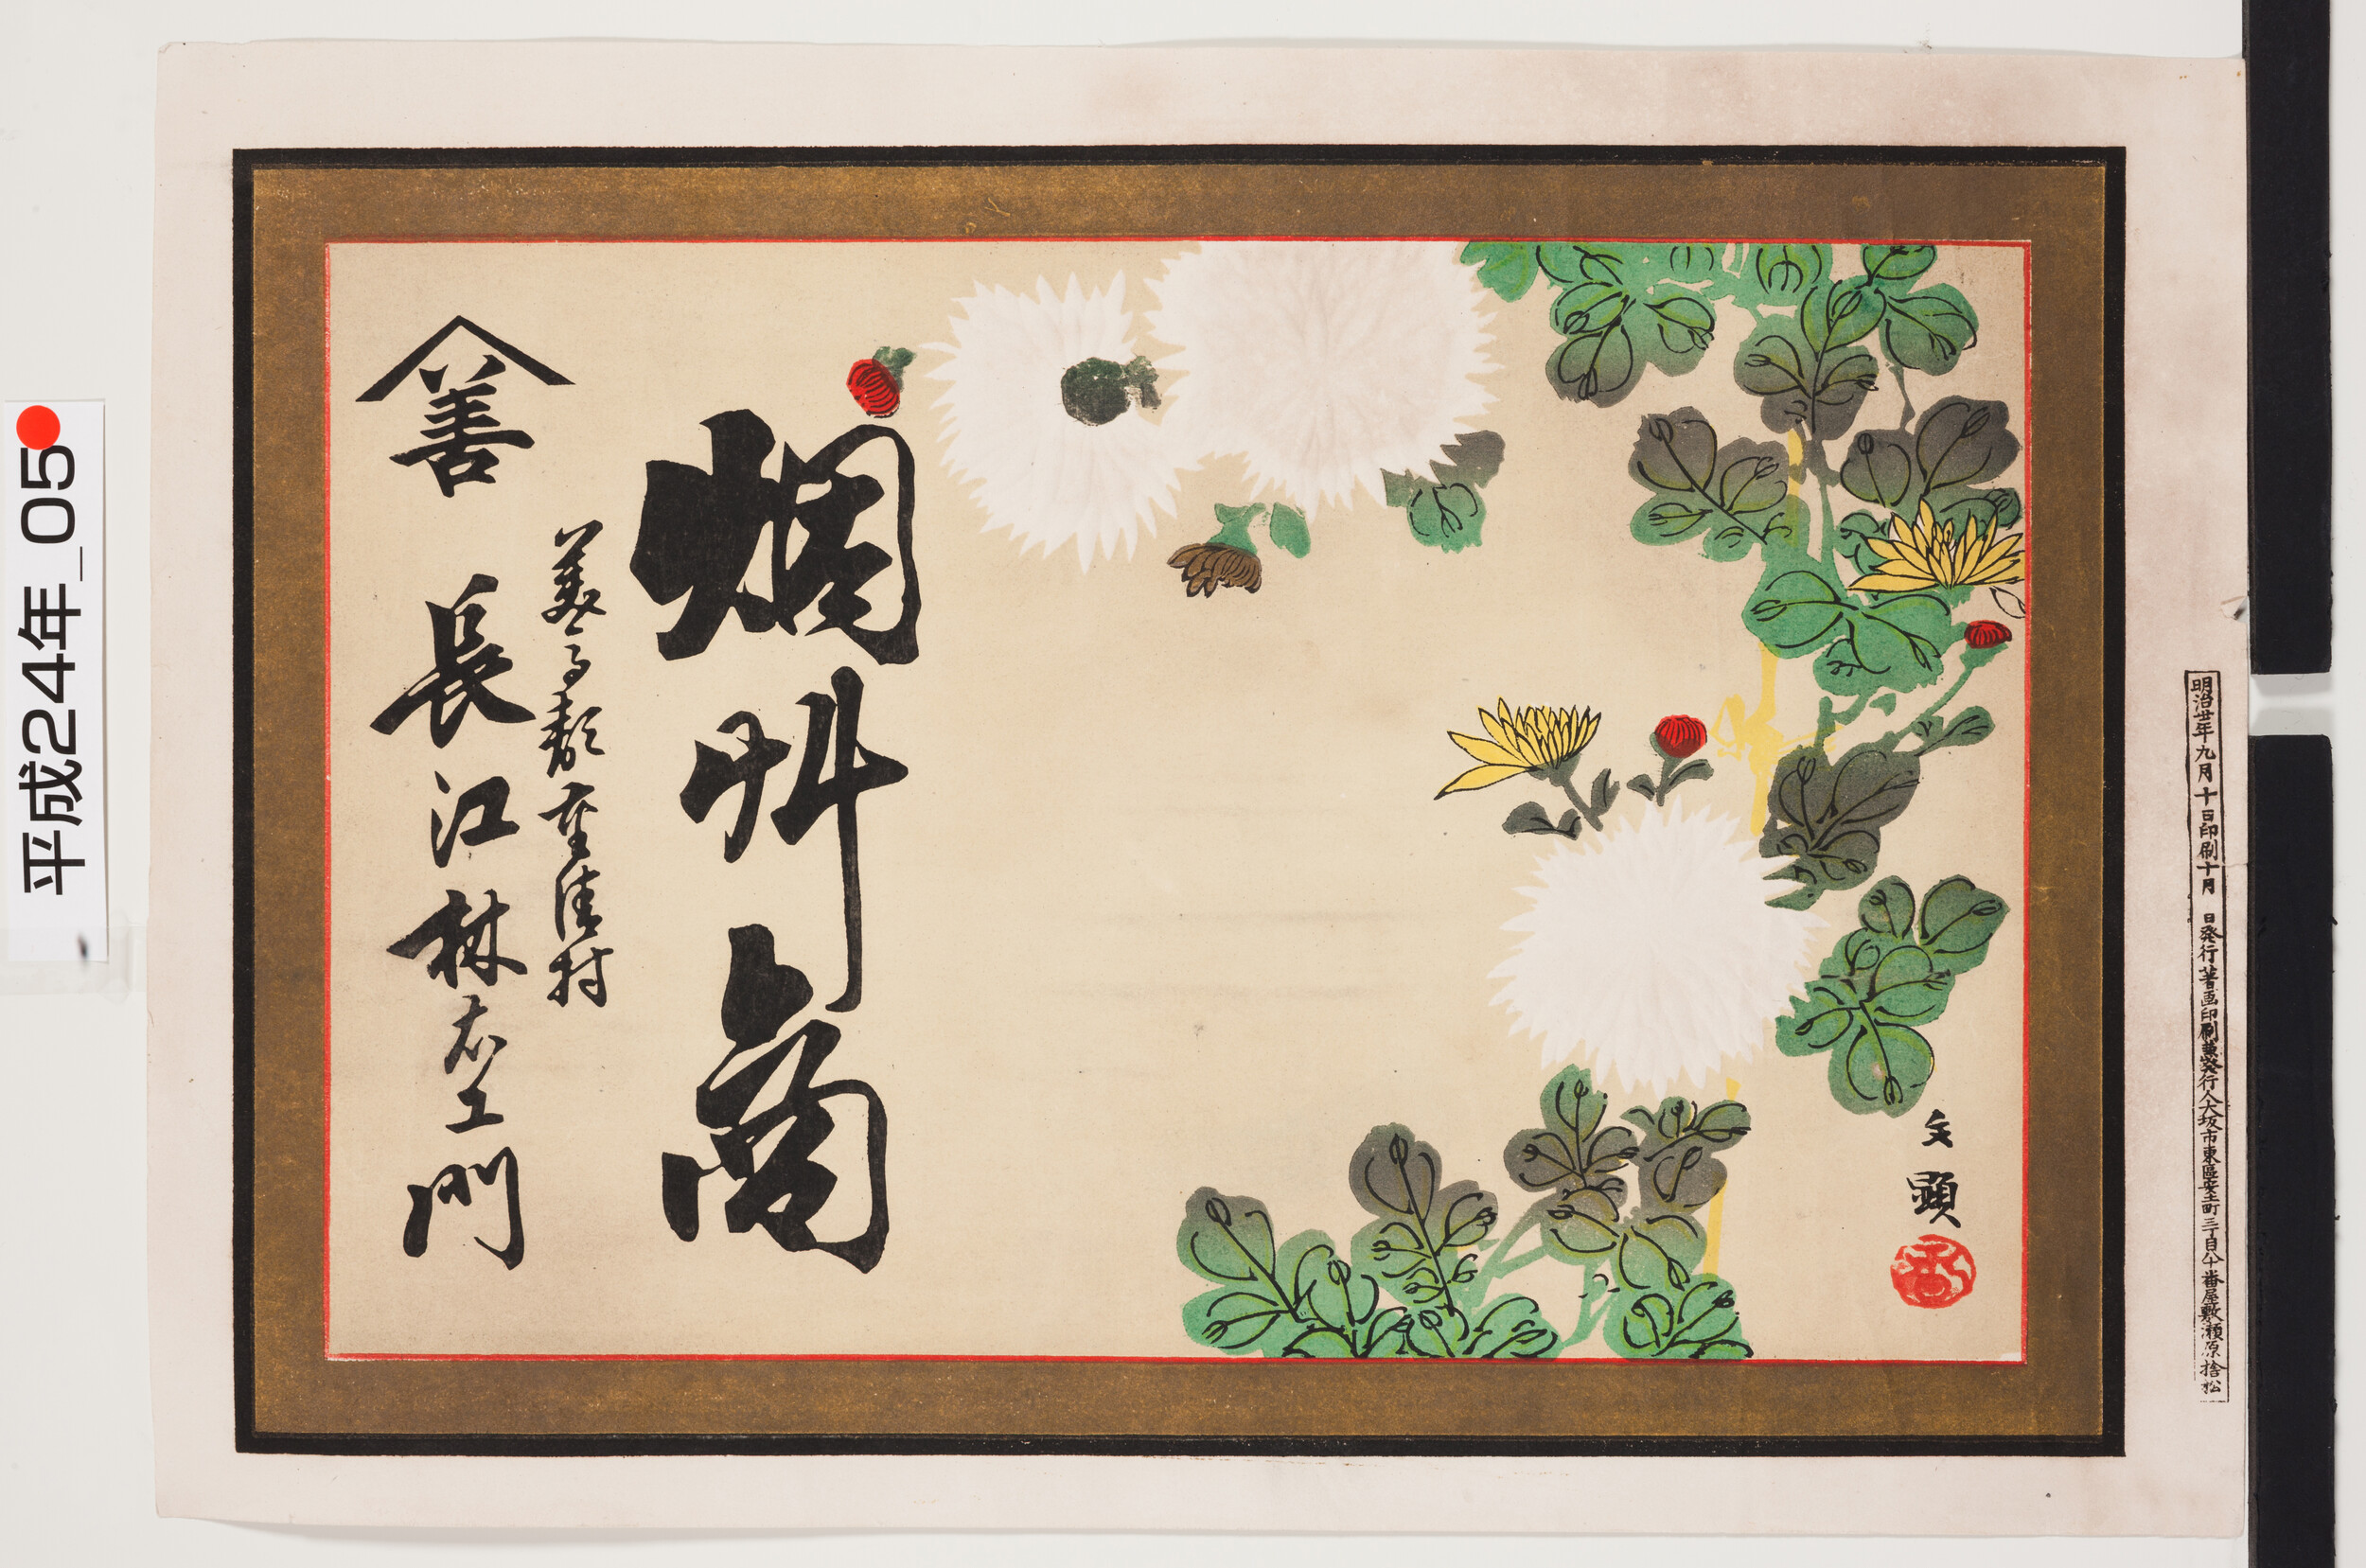 明治丗年九月十日印刷十月 日発行著画印刷兼発行人大坂市東區安土町三丁目八十番屋敷瀬原捨松
文顕
烟艸商
美馬郡重清村
善 長江林右エ門
平成24年_05